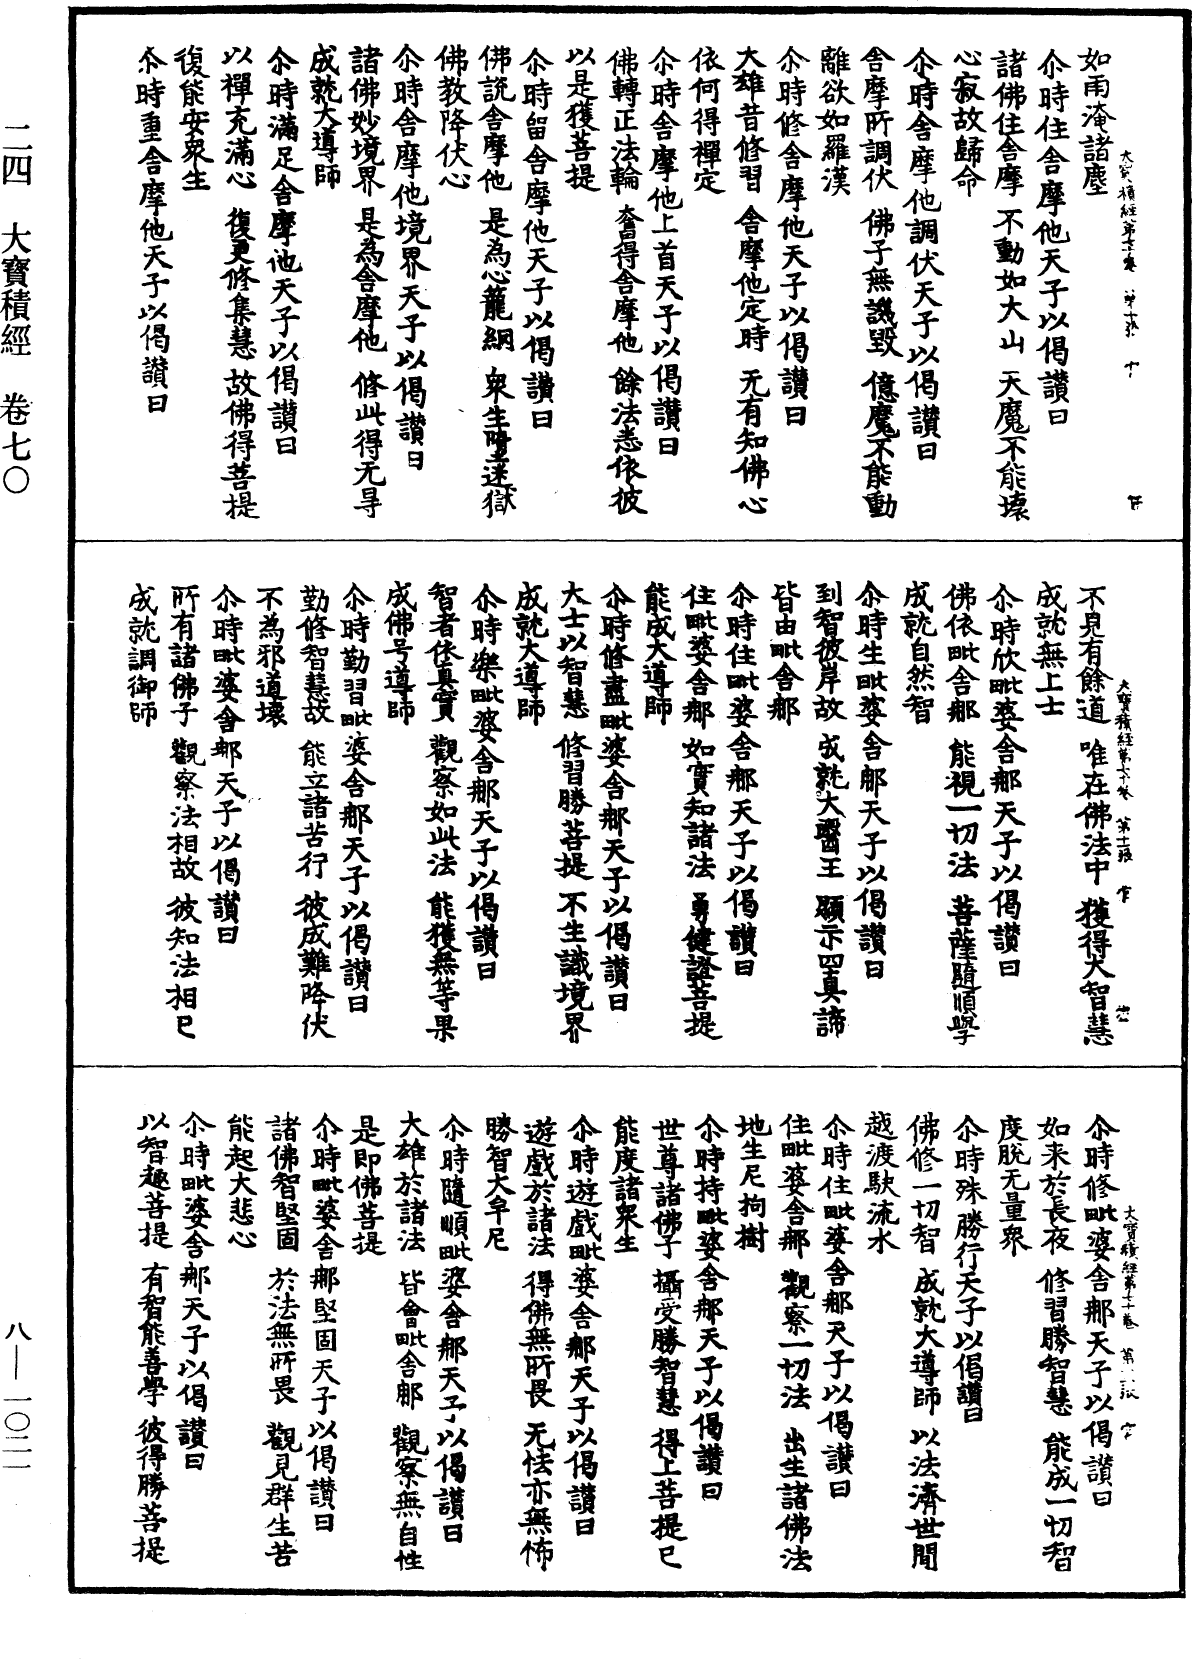 二四　大寶積經　卷七〇
八—一〇二一
如雨淹諸塵
尒時住舍摩他天子以偈讃曰
諸佛住舍摩　不動如大山　天魔不能壞
心寂故歸命
尒時舍摩他調伏天子以偈讃曰
舍摩所調伏　佛子無譏毀　億魔不能動
離欲如羅漢
尒時修舍摩他天子以偈讃曰
大雄昔修習　舍摩他定時　无有知佛心
依何得禪定
尒時舍摩他上首天子以偈讃曰
佛轉正法輪　奮得舍摩他　餘法悉依彼
以是獲菩提
尒時留舍摩他天子以偈讃曰
佛説舍摩他　是為心籠網　衆生墮迷獄
佛教降伏心
尒時舍摩他境界天子以偈讃曰
諸佛妙境界　是為舍摩他　修此得无㝵
成就大導師
尒時滿足舍摩他天子以偈讃曰
以禪充滿心　復更修集慧　故佛得菩提
復能安衆生
尒時重舍摩他天子以偈讃曰
大寶積經第七十卷
不見有餘道　唯在佛法中　獲得大智慧
成就無上士
尒時欣毗婆舍那天子以偈讃曰
佛依毗舍那　能視一切法　菩薩隨順學
成就自然智
尒時生毗婆舍那天子以偈讃曰
到智彼岸故　成就大醫王　顯示四真諦
皆由毗舍那
尒時住毗婆舍那天子以偈讃曰
住毗婆舍那　如實知諸法　勇健證菩提
能成大導師
尒時修盡毗婆舍那天子以偈讃曰
大士以智慧　修習勝菩提　不生識境界
成就大導師
尒時樂毗婆舍那天子以偈讃曰
智者依真實　觀察如此法　能獲無等果
成佛号導師
尒時勤習毗婆舍那天子以偈讃曰
勤修智慧故　能立諸苦行　彼成難降伏
不為邪道壞
尒時毗婆舍那天子以偈讃曰
所有諸佛子　觀察法相故　彼知法相已
成就調御師
大寶積經第七十卷　第十一張
尒時修毗婆舍那天子以偈讃曰
如来於長夜　修習勝智慧　能成一切智
度脫无量衆
尒時殊勝行天子以偈讃曰
佛修一切智　成就大導師　以法濟世間
越渡駛流水
尒時住毗婆舍那天子以偈讃曰
住毗婆舍那　觀察一切法　出生諸佛法
地生尼拘樹
尒時持毗婆舍那天子以偈讃曰
世尊諸佛子　攝受勝智慧　得上菩提已
能度諸衆生
尒時遊戲毗婆舍那天子以偈讃曰
遊戲於諸法　得佛無所畏　无怯亦無怖
勝智大牟尼
尒時隨順毗婆舍那天子以偈讃曰
大雄於諸法　皆會毗舍那　觀察無自性
是即佛菩提
尒時毗婆舍那堅固天子以偈讃曰
諸佛智堅固　於法無所畏　觀見群生苦
能起大悲心
尒時毗婆舍那天子以偈讃曰
以智趣菩提　有智能善學　彼得勝菩提
大寶積經第七十卷